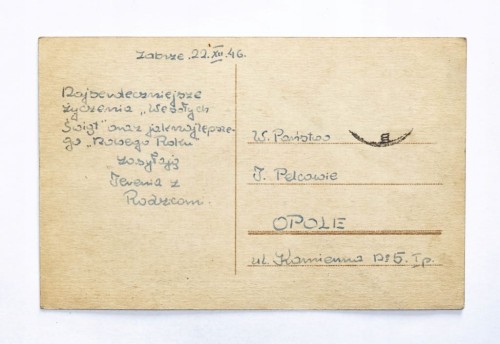 Zabrze, 22.XII.46.
Najserdeczniejsze
życzenia „Wesołych
Świąt" oraz jaknajlepsze-
go „Nowego Roku"
zasyłają
Irenia z
Rodzcami.
W. Państwo
J. Pelcowie
OPOLE
ul. Kamienna № 5. I p.